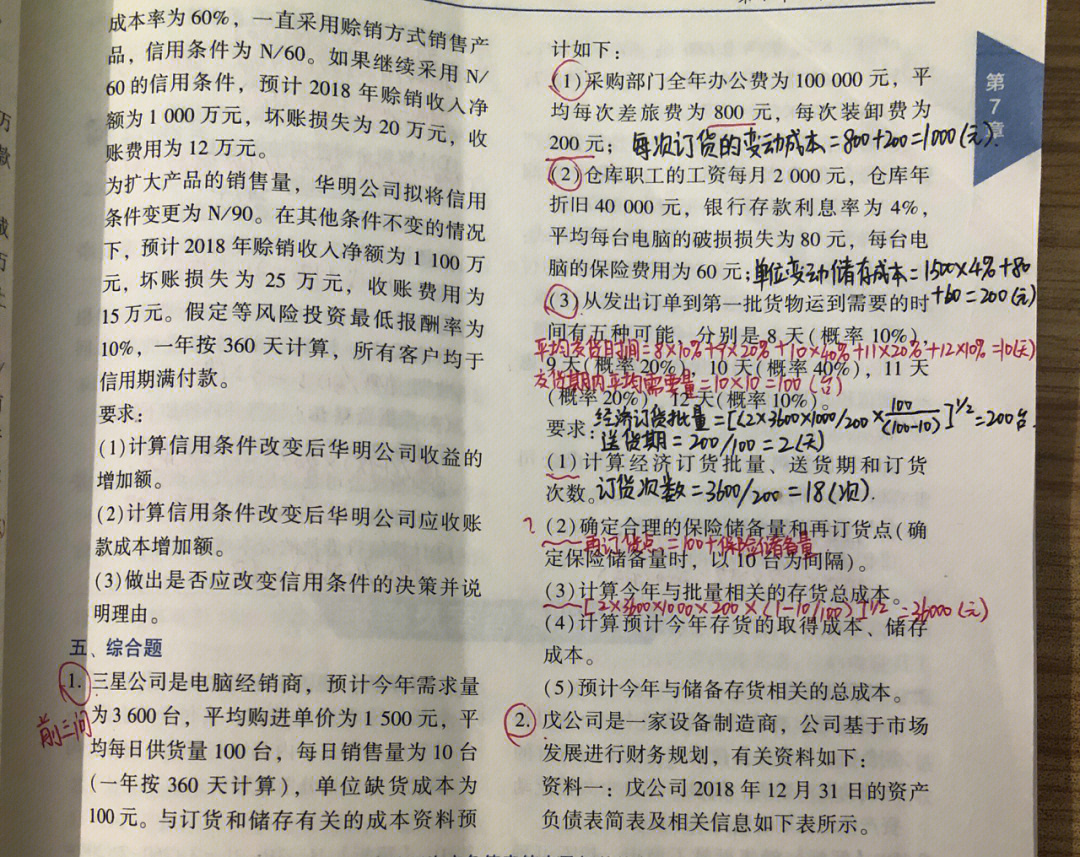 成本率为 60%，一直采用赊销方式销售产
品，信用条件为 N/60。如果继续采用 N/
60 的信用条件，预计 2018 年赊销收入净
额为 1 000 万元，坏账损失为 20 万元，收
账费用为 12 万元。
为扩大产品的销售量，华明公司拟将信用
条件变更为 N/90。在其他条件不变的情况
下，预计 2018 年赊销收入净额为 1 100 万
元，坏账损失为 25 万元，收账费用为
15 万元。假定等风险投资最低报酬率为
10%，一年按 360 天计算，所有客户均于
信用期满付款。
要求：
(1)计算信用条件改变后华明公司收益的
增加额。
(2)计算信用条件改变后华明公司应收账
款成本增加额。
(3)做出是否应改变信用条件的决策并说
明理由。
五、综合题
1. 三星公司是电脑经销商，预计今年需求量
前三问
为 3 600 台，平均购进单价为 1 500 元，平
均每日供货量 100 台，每日销售量为 10 台
(一年按 360 天计算)，单位缺货成本为
100 元。与订货和储存有关的成本资料预
第
7
章
计如下：
(1)采购部门全年办公费为 100 000 元，平
均每次差旅费为 800 元，每次装卸费为
200 元；每次订货的变动成本=800+200=1000(元).
(2)仓库职工的工资每月 2 000 元，仓库年
折旧 40 000 元，银行存款利息率为 4%，
平均每台电脑的破损损失为 80 元，每台电
脑的保险费用为 60 元；单位变动储存成本=1500×4%+80
+60=200(元)
(3)从发出订单到第一批货物运到需要的时
间有五种可能，分别是 8 天(概率 10%)，
平均交货时间=8×10%+9×20%+10×40%+11×20%+12×10%=10(天)
9 天(概率 20%)，10 天(概率 40%)，11 天
交货期内平均需要量=10×10=100(台)
(概率 20%)，12 天(概率 10%)。
经济订货批量=[(2×3600×1000/200×100/(100-10)]^1/2=200台.
要求：
送货期=200/100=2(天)
(1)计算经济订货批量、送货期和订货
次数。订货次数=3600/200=18(次).
? (2)确定合理的保险储备量和再订货点(确
再订货点=100+保险储备量
定保险储备量时，以 10 台为间隔)。
(3)计算今年与批量相关的存货总成本。
[2×3600×1000×200×(1-10/100)]^1/2=36000(元)
(4)计算预计今年存货的取得成本、储存
成本。
(5)预计今年与储备存货相关的总成本。
2. 戊公司是一家设备制造商，公司基于市场
发展进行财务规划，有关资料如下：
资料一：戊公司 2018 年 12 月 31 日的资产
负债表简表及相关信息如下表所示。